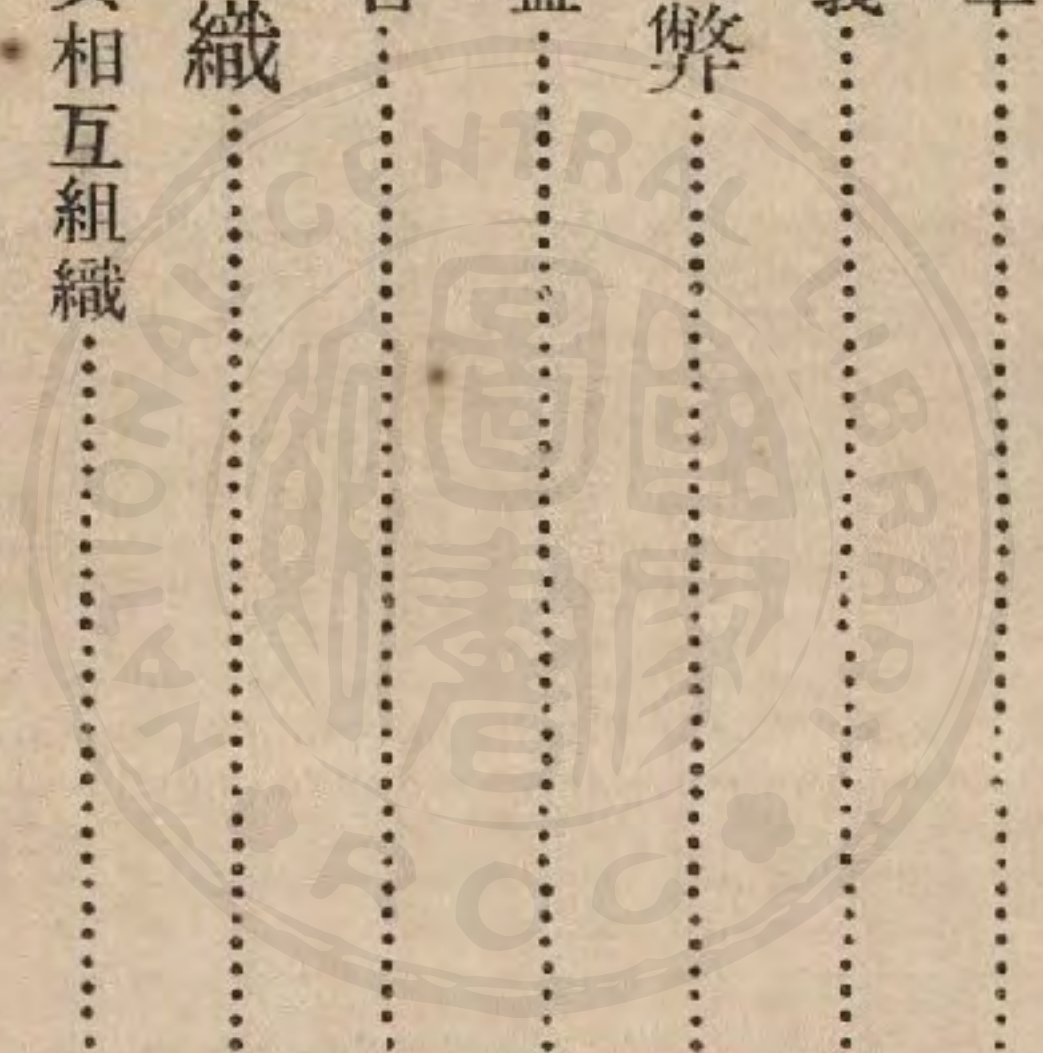 義
弊
益
織
相互組織
NATIONAL CENTRAL LIBRARY
國家圖書館
ROC